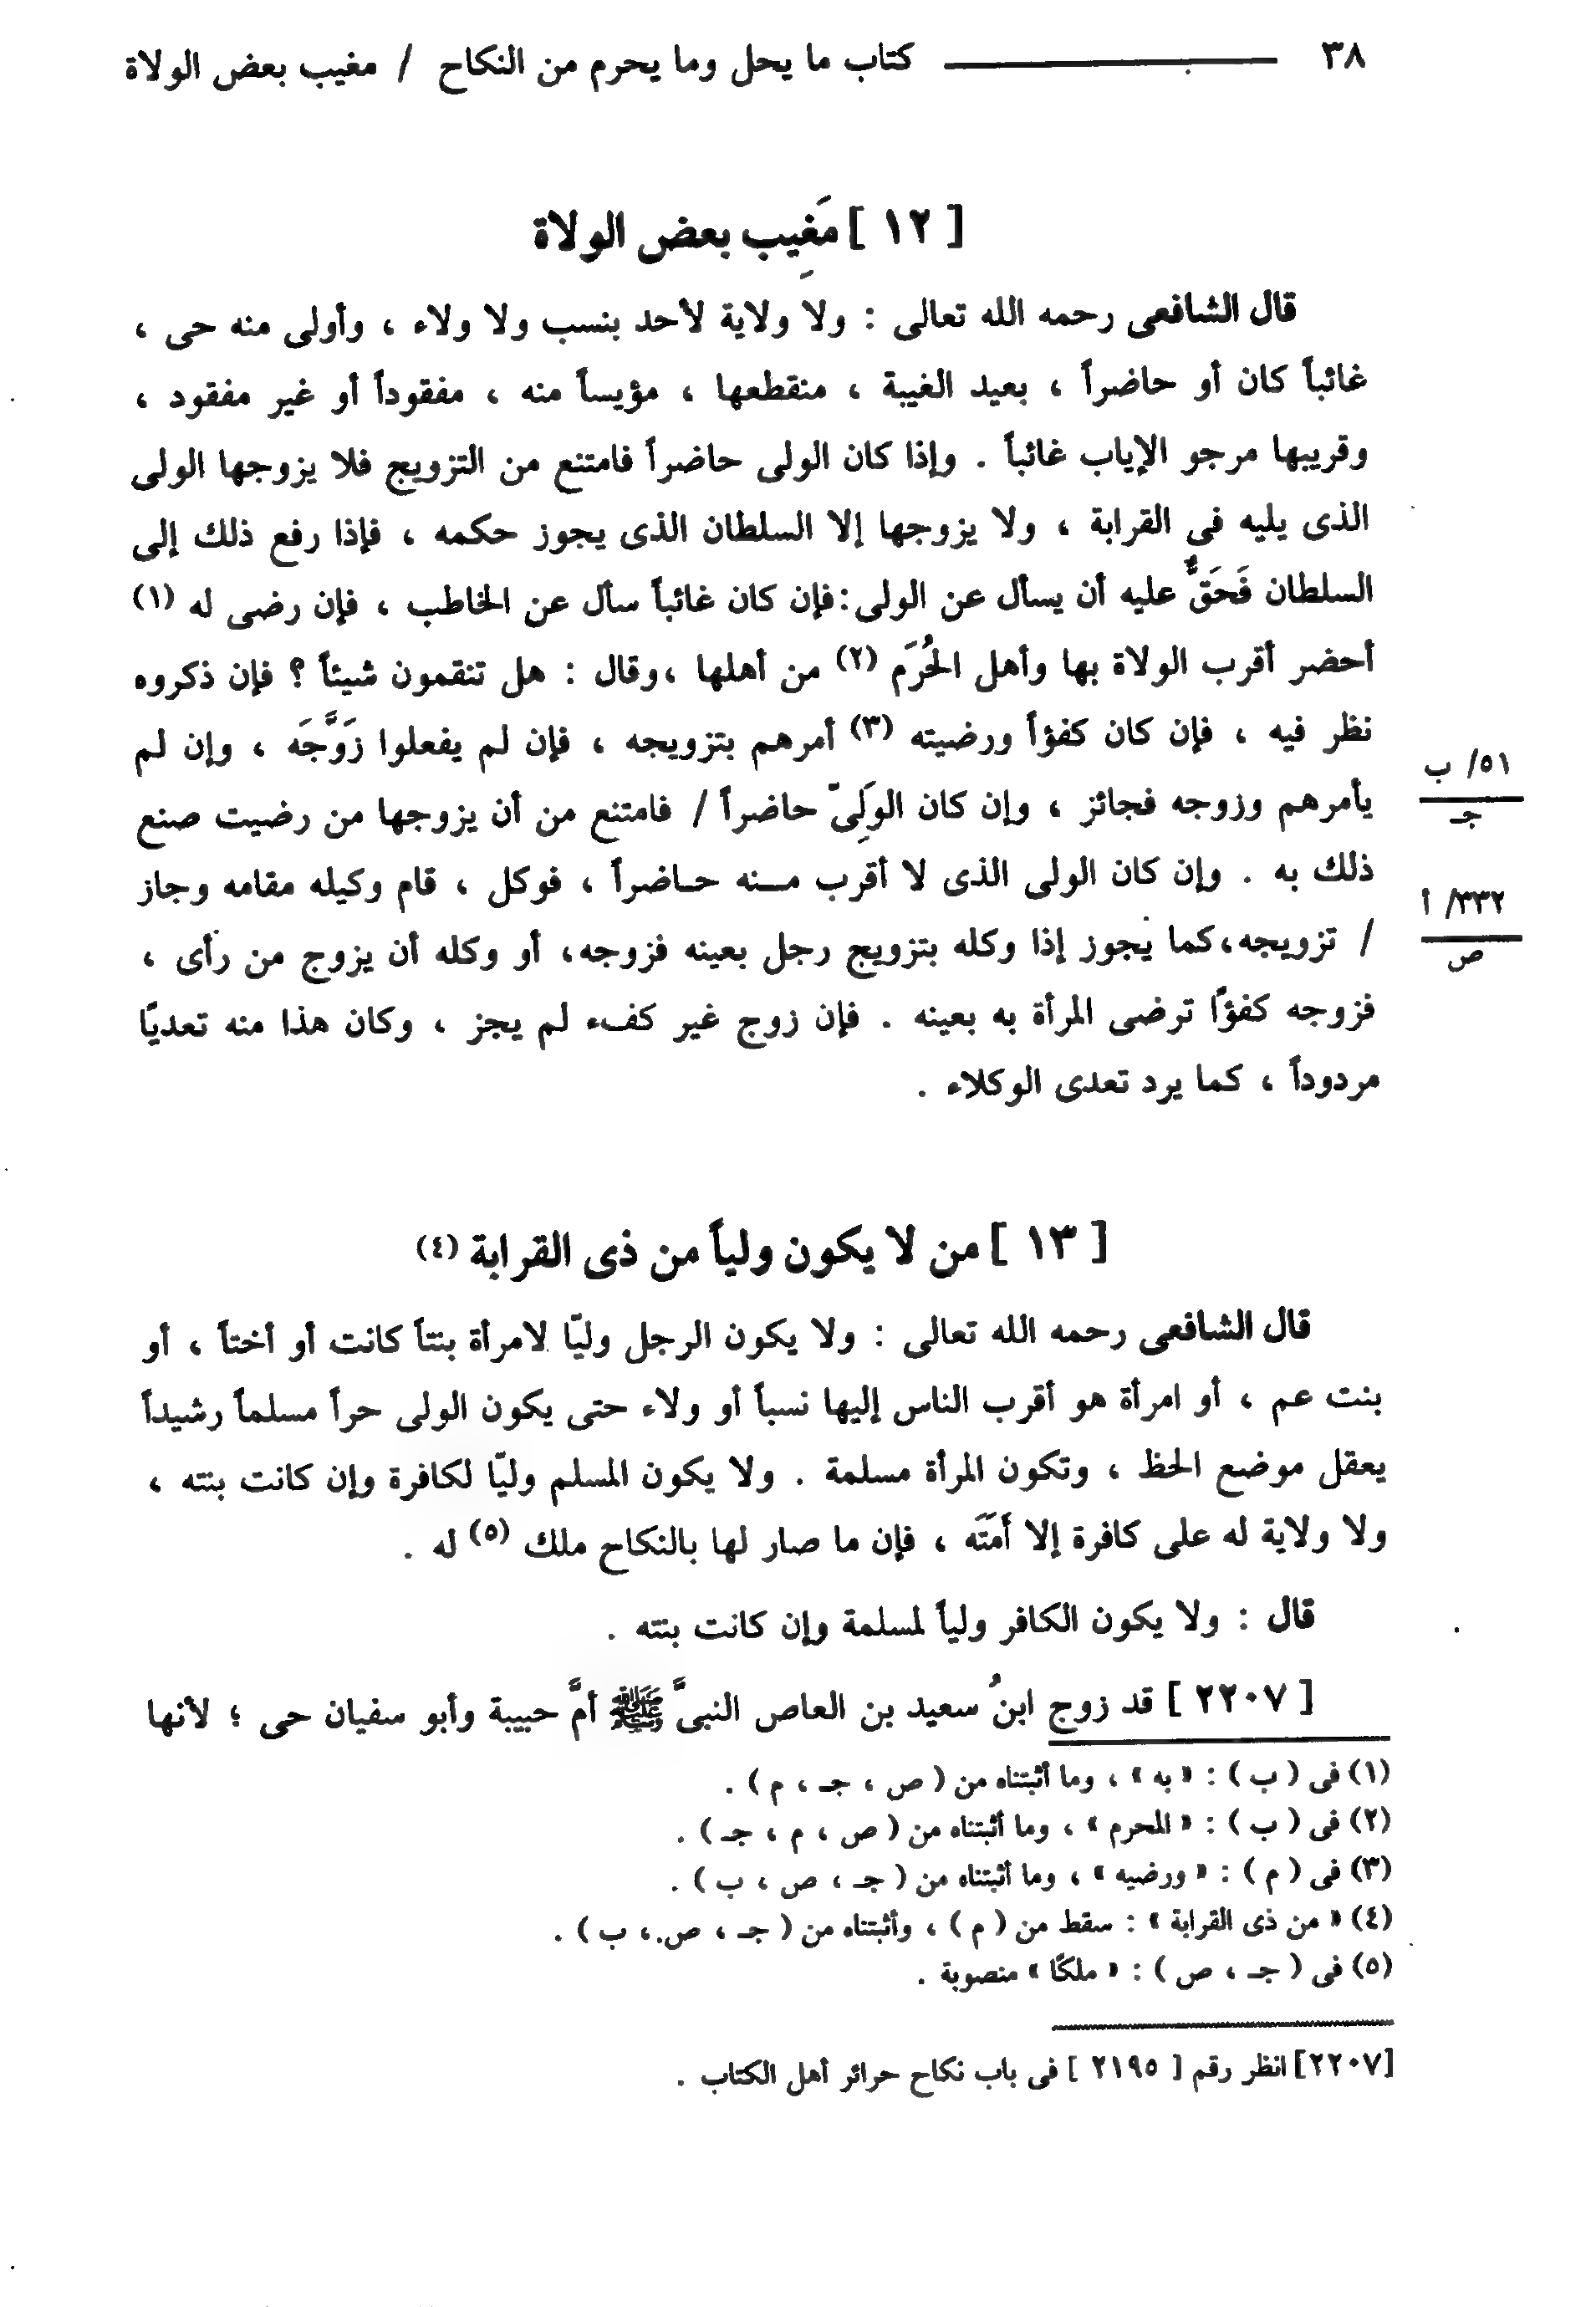 ٣٨ ـــــــ كتاب ما يحل وما يحرم من النكاح / مغيب بعض الولاة
[ ١٢ ] مَغِيب بعض الولاة
قال الشافعى رحمه الله تعالى : ولا ولاية لأحد بنسب ولا ولاء ، وأولى منه حى ،
غائباً كان أو حاضراً ، بعيد الغيبة ، منقطعها ، مؤيساً منه ، مفقوداً أو غير مفقود ،
وقريبها مرجو الإياب غائباً . وإذا كان الولى حاضراً فامتنع من التزويج فلا يزوجها الولى
الذى يليه فى القرابة ، ولا يزوجها إلا السلطان الذى يجوز حكمه ، فإذا رفع ذلك إلى
السلطان فَحَقٌّ عليه أن يسأل عن الولى : فإن كان غائباً سأل عن الخاطب ، فإن رضى له (١)
أحضر أقرب الولاة بها وأهل الحُرَم (٢) من أهلها ، وقال : هل تنقمون شيئاً ؟ فإن ذكروه
نظر فيه ، فإن كان كفؤاً ورضيته (٣) أمرهم بتزويجه ، فإن لم يفعلوا زَوَّجَه ، وإن لم
٥١/ ب
جـ
يأمرهم وزوجه فجائز ، وإن كان الوَلِىّ حاضراً / فامتنع من أن يزوجها من رضيت صنع
ذلك به . وإن كان الولى الذى لا أقرب مـــنه حـاضراً ، فوكل ، قام وكيله مقامه وجاز
٣٣٢/ أ
ص
/ تزويجه، كما يجوز إذا وكله بتزويج رجل بعينه فزوجه، أو وكله أن يزوج من رأى ،
فزوجه كفؤًا ترضى المرأة به بعينه . فإن زوج غير كفء لم يجز ، وكان هذا منه تعديًا
مردوداً ، كما يرد تعدى الوكلاء .
[ ١٣ ] من لا يكون ولياً من ذى القرابة (٤)
قال الشافعى رحمه الله تعالى : ولا يكون الرجل وليّا لامرأة بنتاً كانت أو أختاً ، أو
بنت عم ، أو امرأة هو أقرب الناس إليها نسباً أو ولاء حتى يكون الولى حراً مسلماً رشيداً
يعقل موضع الحظ ، وتكون المرأة مسلمة . ولا يكون المسلم وليّا لكافرة وإن كانت بنته ،
ولا ولاية له على كافرة إلا أَمَتَه ، فإن ما صار لها بالنكاح ملك (٥) له .
قال : ولا يكون الكافر ولياً لمسلمة وإن كانت بنته .
[ ٢٢٠٧ ] قد زوج ابنُ سعيد بن العاص النبىَّ ﷺ أمَّ حبيبة وأبو سفيان حى ؛ لأنها
(١) فى ( ب ) : « به » ، وما أثبتناه من ( ص ، جـ ، م ) .
(٢) فى ( ب ) : « المحرم » ، وما أثبتناه من ( ص ، م ، جـ ) .
(٣) فى ( م ) : « ورضيه » ، وما أثبتناه من ( جـ ، ص ، ب ) .
(٤) « من ذى القرابة » : سقط من ( م ) ، وأثبتناه من ( جـ ، ص ، ب ) .
(٥) فى ( جـ ، ص ) : « ملكًا » منصوبة .
[٢٢٠٧] انظر رقم [ ٢١٩٥ ] فى باب نكاح حرائر أهل الكتاب .